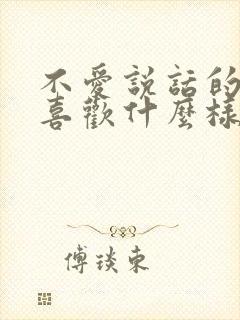 不愛説話的
喜歡什麼樣
傅琰東